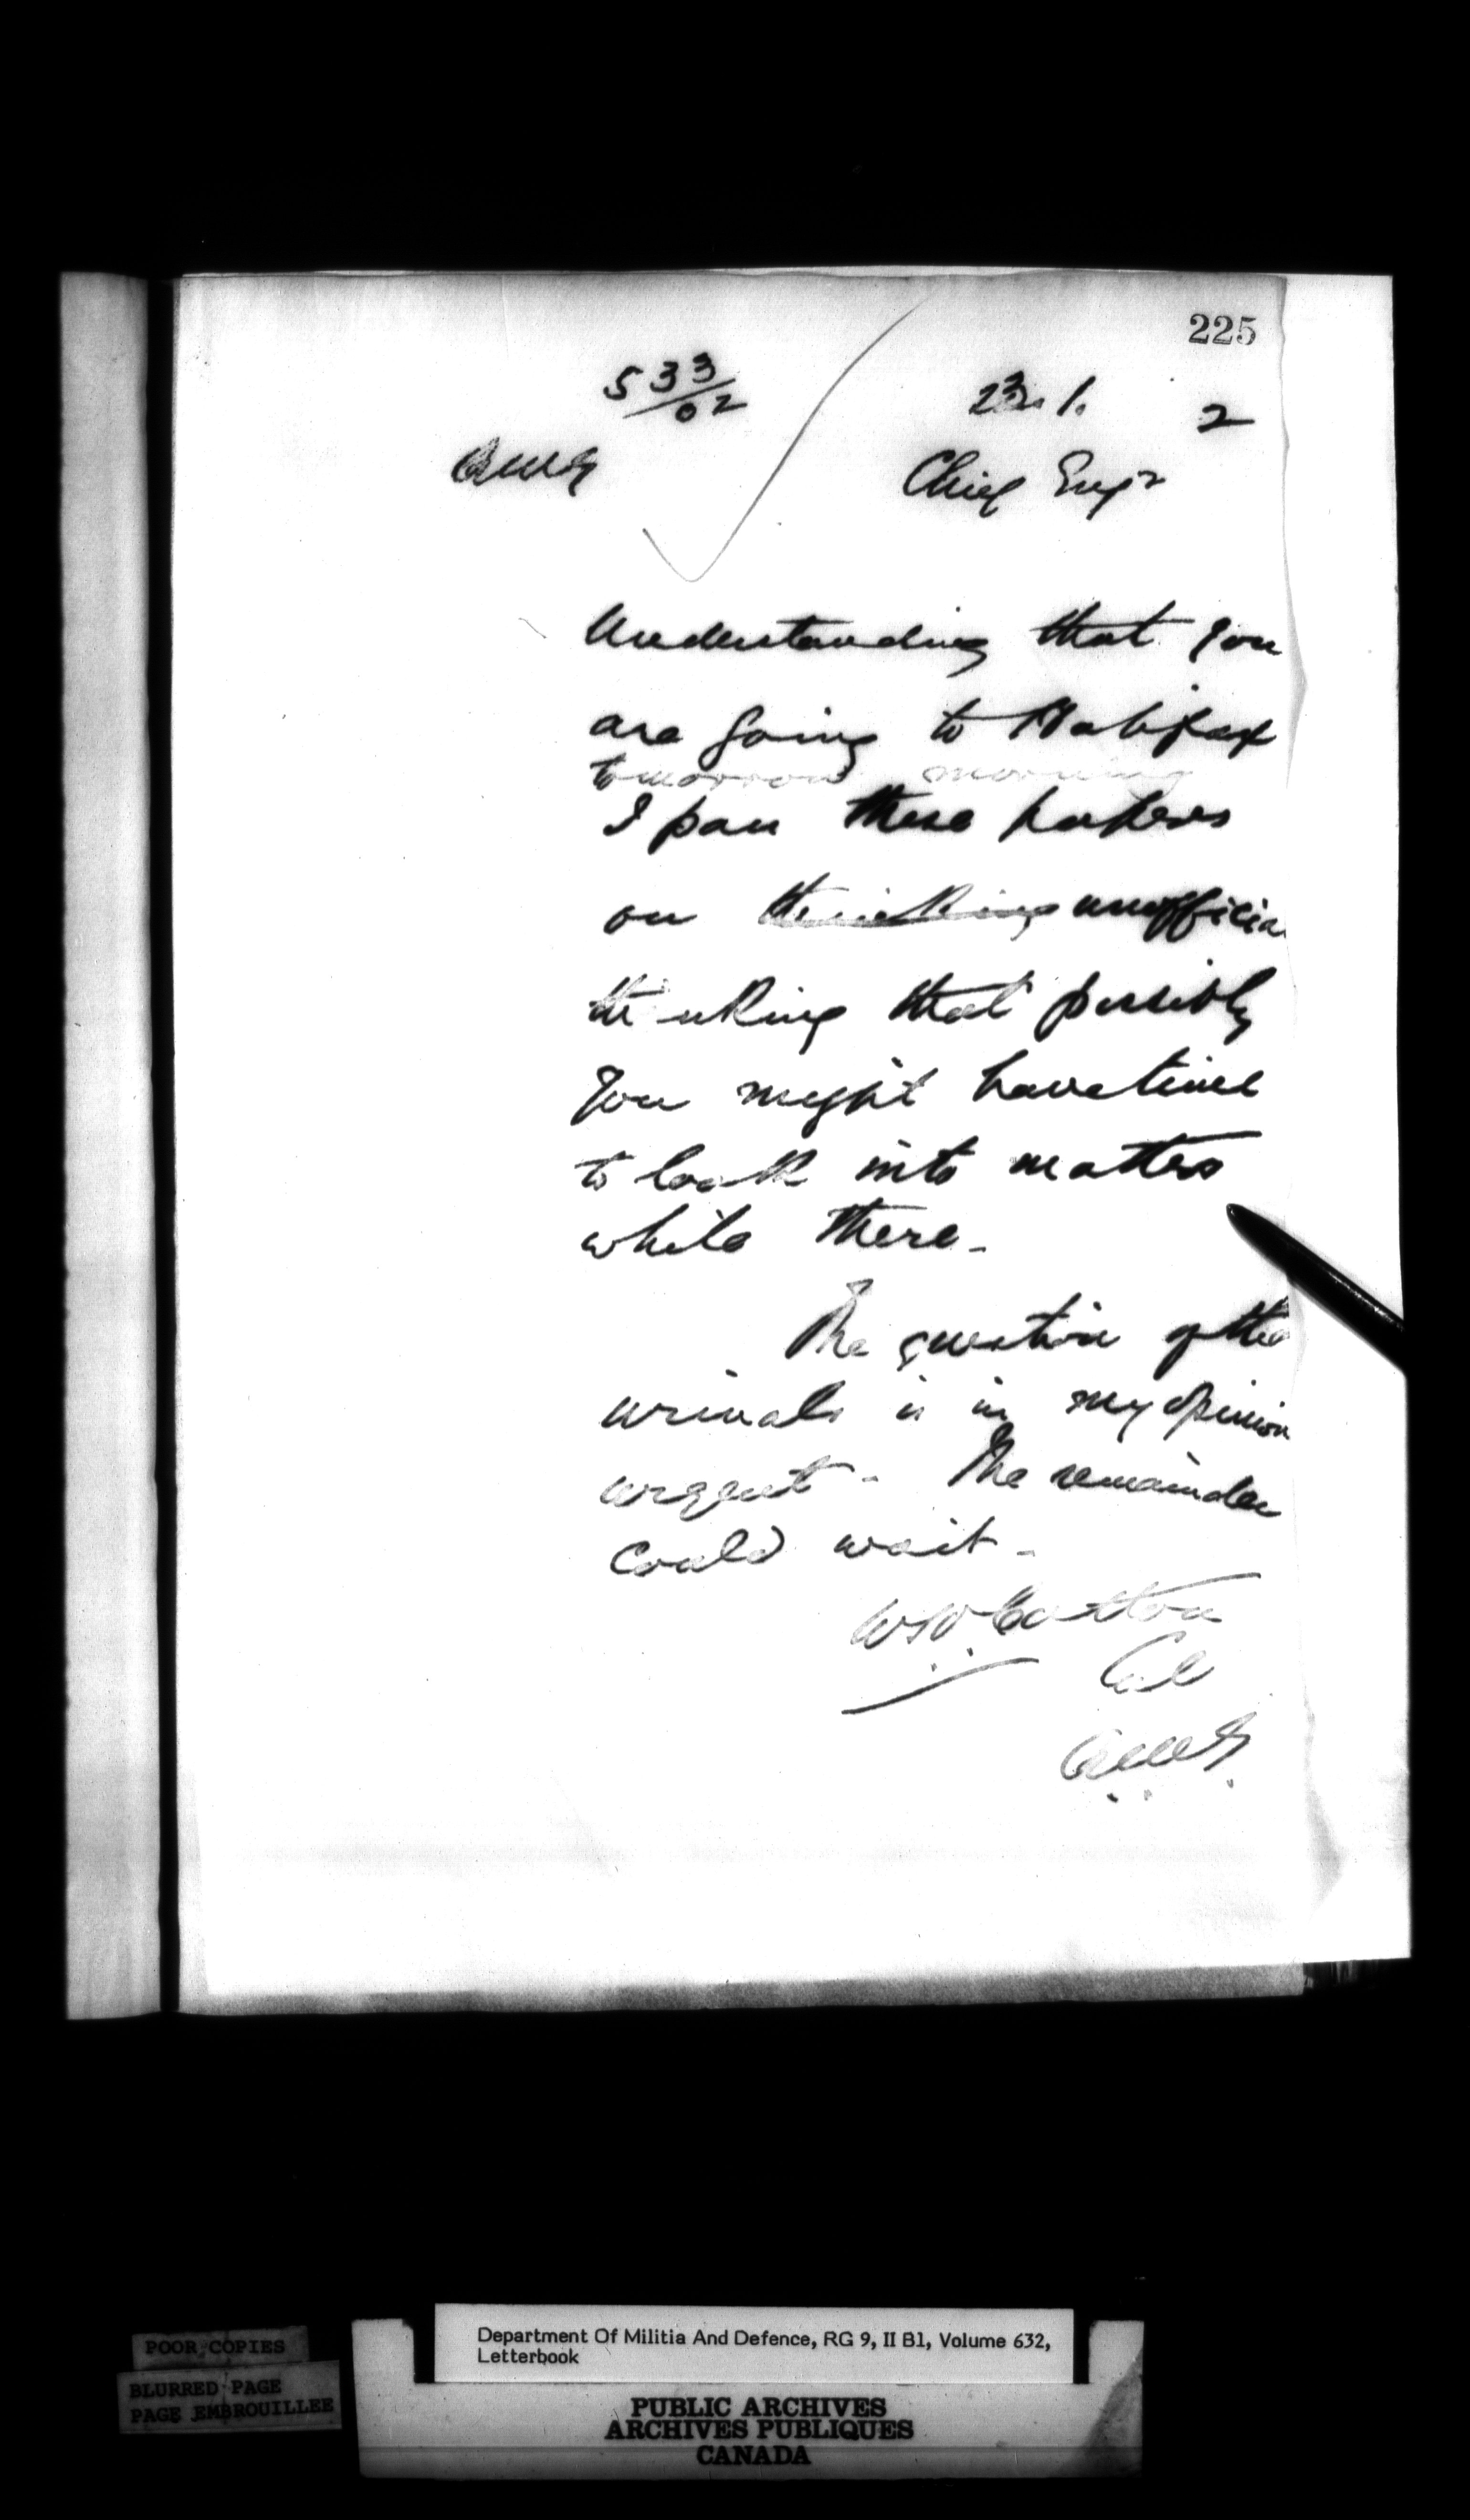 225
533/02
23. 1. 2
QMG
Chief Engr
Understanding that you
are going to Halifax
tomorrow morning
I pass these papers
on thinking unofficia
thinking that possibly
you might have time
to look into matters
while there -
The question of the
urinals is in my opinion
urgent - The remainder
could wait -
WHCotton
Col
QMG
POOR COPIES
BLURRED PAGE
PAGE EMBROUILLEE
Department Of Militia And Defence, RG 9, II B1, Volume 632,
Letterbook
PUBLIC ARCHIVES
ARCHIVES PUBLIQUES
CANADA